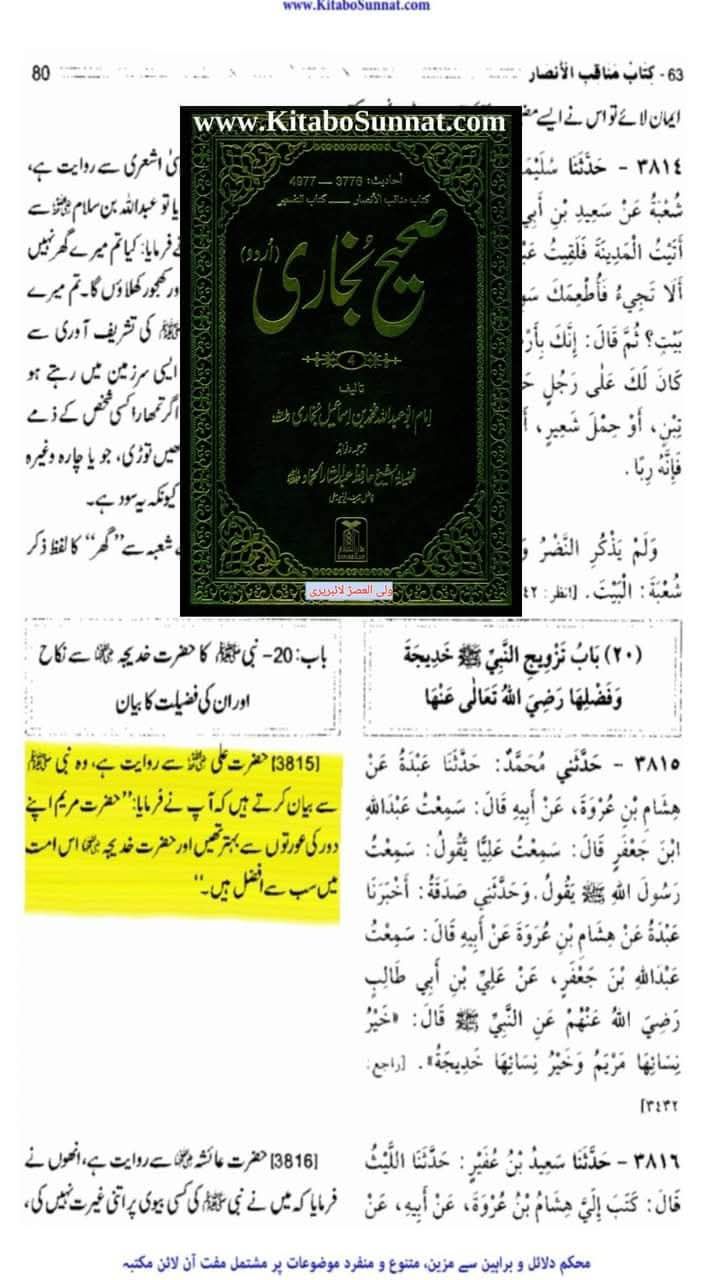 www.KitaboSunnat.com
63- كِتَابُ مَنَاقِبِ الْأَنْصَارِ
80
ایمان لائے تو اس نے ایسے
٣٨١٤ - حَدَّثَنَا سُلَيْمَ
شُعْبَةُ عَنْ سَعِيدِ بْنِ أَبِي
أَتَيْتُ الْمَدِينَةَ فَلَقِيتُ عَبْ
أَلَا تَجِيءُ فَأُطْعِمَكَ سَوِ
بَيْتٍ؟ ثُمَّ قَالَ: إِنَّكَ بِأَرْ
كَانَ لَكَ عَلَى رَجُلٍ حَ
تِبْنٍ، أَوْ حِمْلَ شَعِيرٍ، أَ
فَإِنَّهُ رِبًا.
وَلَمْ يَذْكُرِ النَّضْرُ وَ
شُعْبَةَ: الْبَيْتَ. [انظر: ٤٢
سیٰ اشعری سے روایت ہے،
یا تو عبداللہ بن سلام ؓ سے
نے فرمایا: کیا تم میرے گھر نہیں
ور کھجور کھلاؤں گا۔ تم میرے
ﷺ کی تشریف آوری سے
ایسی سرزمین میں رہتے ہو
اگر تمھارا کسی شخص کے ذمے
ھیں توڑی، جو یا چارہ وغیرہ
کیونکہ یہ سود ہے۔
شعبہ سے ”گھر“ کا لفظ ذکر
www.KitaboSunnat.com
احادیث: 3776 — 4977
کتاب مناقب الأنصار — کتاب التفسیر
صحیح بخاری (اُردو)
4
تالیف
امام ابو عبداللہ محمد بن اسماعیل بخاری
ترجمہ و فوائد
فضیلۃ الشیخ حافظ عبدالستار الحماد
ولی العصرؑ لائبریری
(٢٠) بَابُ تَزْوِيجِ النَّبِيِّ ﷺ خَدِيجَةَ
وَفَضْلِهَا رَضِيَ اللهُ تَعَالَى عَنْهَا
باب: 20- نبی ﷺ کا حضرت خدیجہ ؓ سے نکاح
اور ان کی فضیلت کا بیان
٣٨١٥ - حَدَّثَنِي مُحَمَّدٌ: حَدَّثَنَا عَبْدَةُ عَنْ
هِشَامِ بْنِ عُرْوَةَ، عَنْ أَبِيهِ قَالَ: سَمِعْتُ عَبْدَاللهِ
ابْنَ جَعْفَرٍ قَالَ: سَمِعْتُ عَلِيًّا يَقُولُ: سَمِعْتُ
رَسُولَ اللهِ ﷺ يَقُولُ. وَحَدَّثَنِي صَدَقَةُ: أَخْبَرَنَا
عَبْدَةُ عَنْ هِشَامِ بْنِ عُرْوَةَ عَنْ أَبِيهِ قَالَ: سَمِعْتُ
عَبْدَاللهِ بْنَ جَعْفَرٍ، عَنْ عَلِيِّ بْنِ أَبِي طَالِبٍ
رَضِيَ اللهُ عَنْهُمْ عَنِ النَّبِيِّ ﷺ قَالَ: «خَيْرُ
نِسَائِهَا مَرْيَمُ وَخَيْرُ نِسَائِهَا خَدِيجَةُ». [راجع:
٣٤٣٢]
[3815] حضرت علی ؓ سے روایت ہے، وہ نبی ﷺ
سے بیان کرتے ہیں کہ آپ نے فرمایا: ”حضرت مریم اپنے
دور کی عورتوں سے بہتر تھیں اور حضرت خدیجہ ؓ اس امت
میں سب سے افضل ہیں۔“
٣٨١٦ - حَدَّثَنَا سَعِيدُ بْنُ عُفَيْرٍ: حَدَّثَنَا اللَّيْثُ
قَالَ: كَتَبَ إِلَيَّ هِشَامُ بْنُ عُرْوَةَ، عَنْ أَبِيهِ، عَنْ
[3816] حضرت عائشہ ؓ سے روایت ہے، انھوں نے
فرمایا کہ میں نے نبی ﷺ کی کسی بیوی پر اتنی غیرت نہیں کی،
محکم دلائل و براہین سے مزین، متنوع و منفرد موضوعات پر مشتمل مفت آن لائن مکتبہ